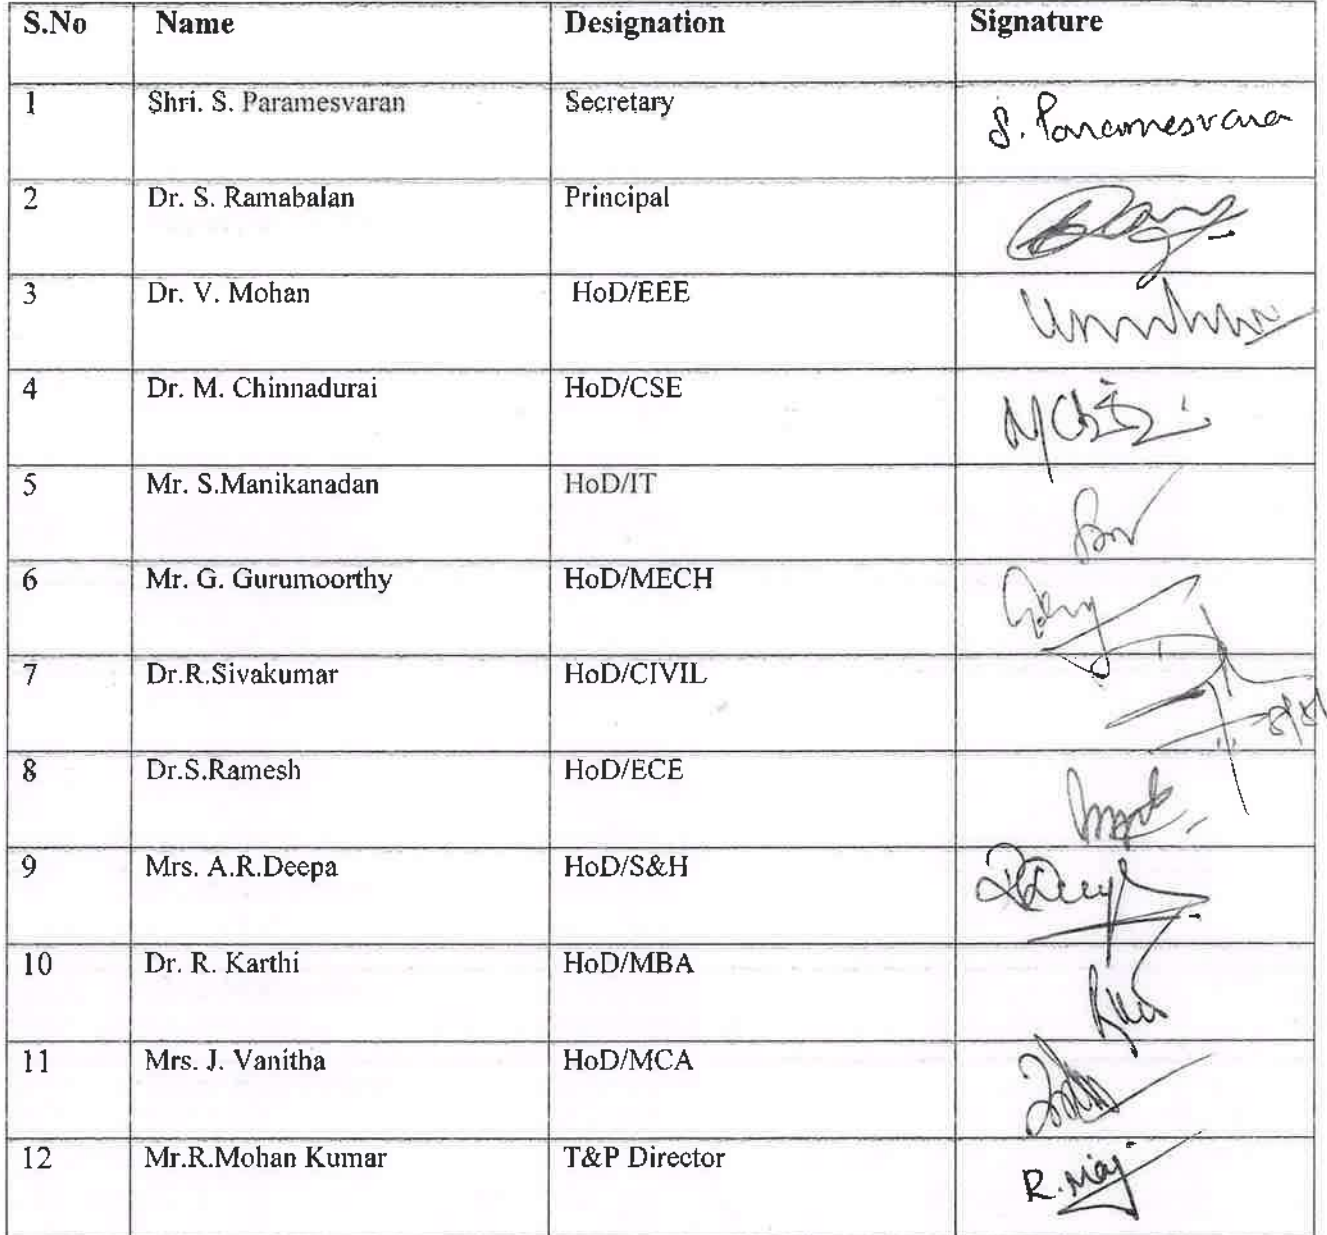 S.No Name Designation Signature
1 Shri. S. Paramesvaran Secretary S. Paramesvaran
2 Dr. S. Ramabalan Principal
3 Dr. V. Mohan HoD/EEE
4 Dr. M. Chinnadurai HoD/CSE
5 Mr. S.Manikanadan HoD/IT
6 Mr. G. Gurumoorthy HoD/MECH
7 Dr.R.Sivakumar HoD/CIVIL
8 Dr.S.Ramesh HoD/ECE
9 Mrs. A.R.Deepa HoD/S&H
10 Dr. R. Karthi HoD/MBA
11 Mrs. J. Vanitha HoD/MCA
12 Mr.R.Mohan Kumar T&P Director